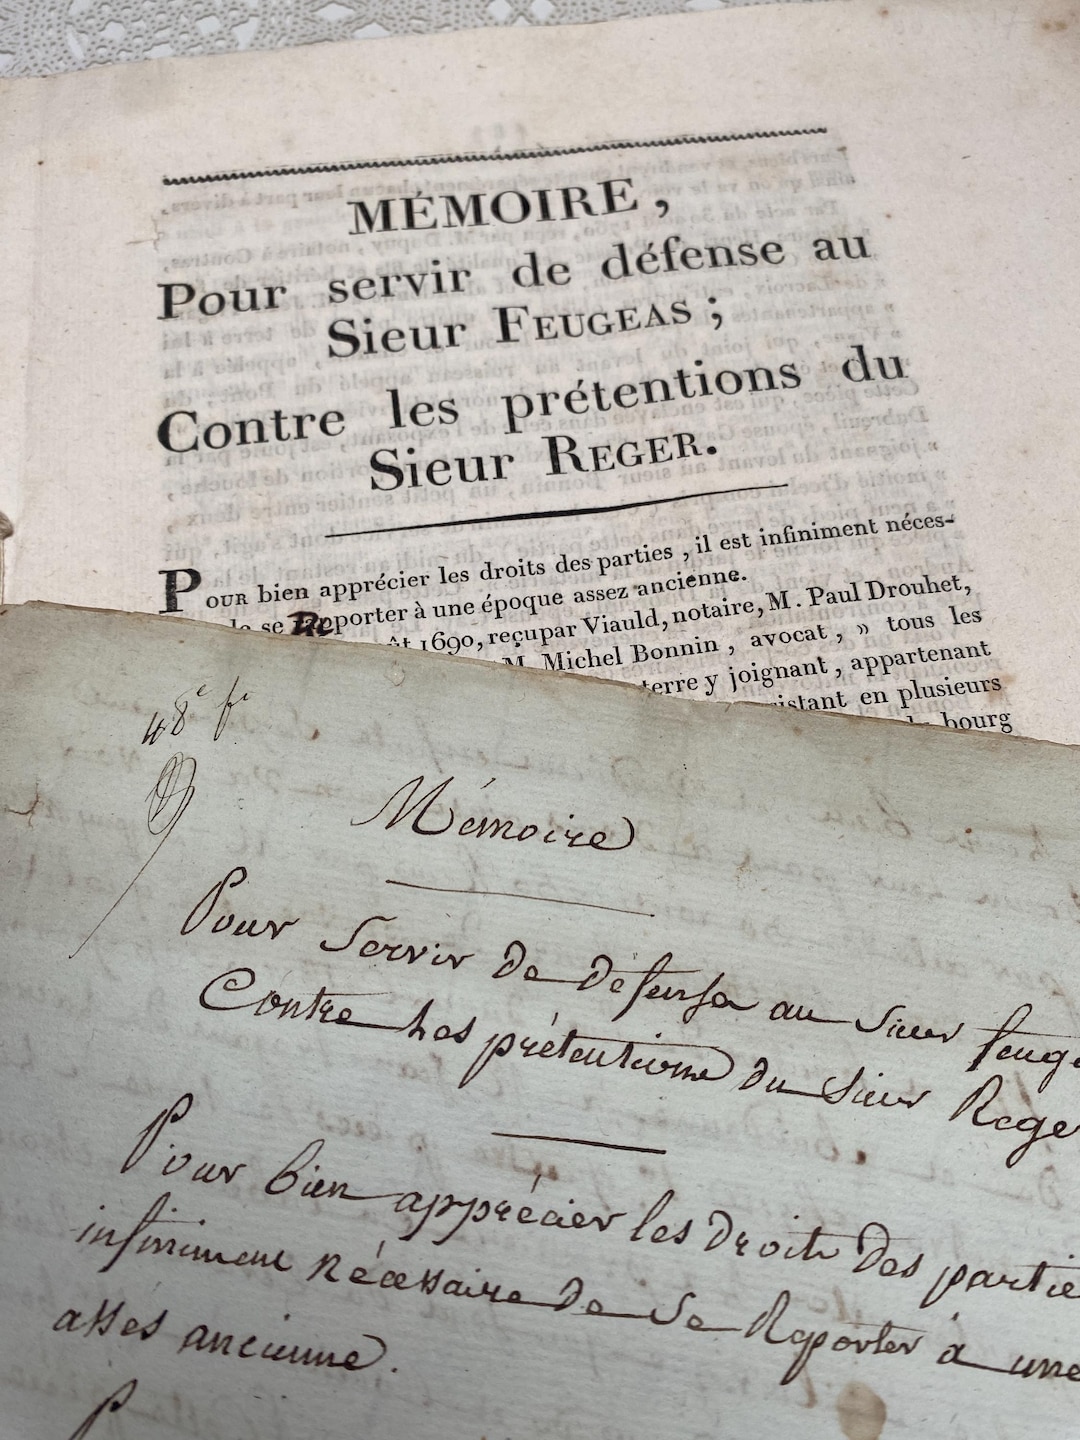 MÉMOIRE,
Pour servir de défense au
Sieur FEUGEAS ;
Contre les prétentions du
Sieur REGER.
POUR bien apprécier les droits des parties, il est infiniment néces-
de se Reporter à une époque assez ancienne.
ût 1690, reçu par Viauld, notaire, M. Paul Drouhet,
M. Michel Bonnin, avocat, » tous les
terre y joignant, appartenant
istant en plusieurs
bourg
48e fr
Mémoire
Pour Servir de defense au Sieur feuge
Contre Les prétentions du Sieur Rege
Pour bien apprécier les droits des partie
infiniment nécessaire de se Reporter à une
assés ancienne.
P